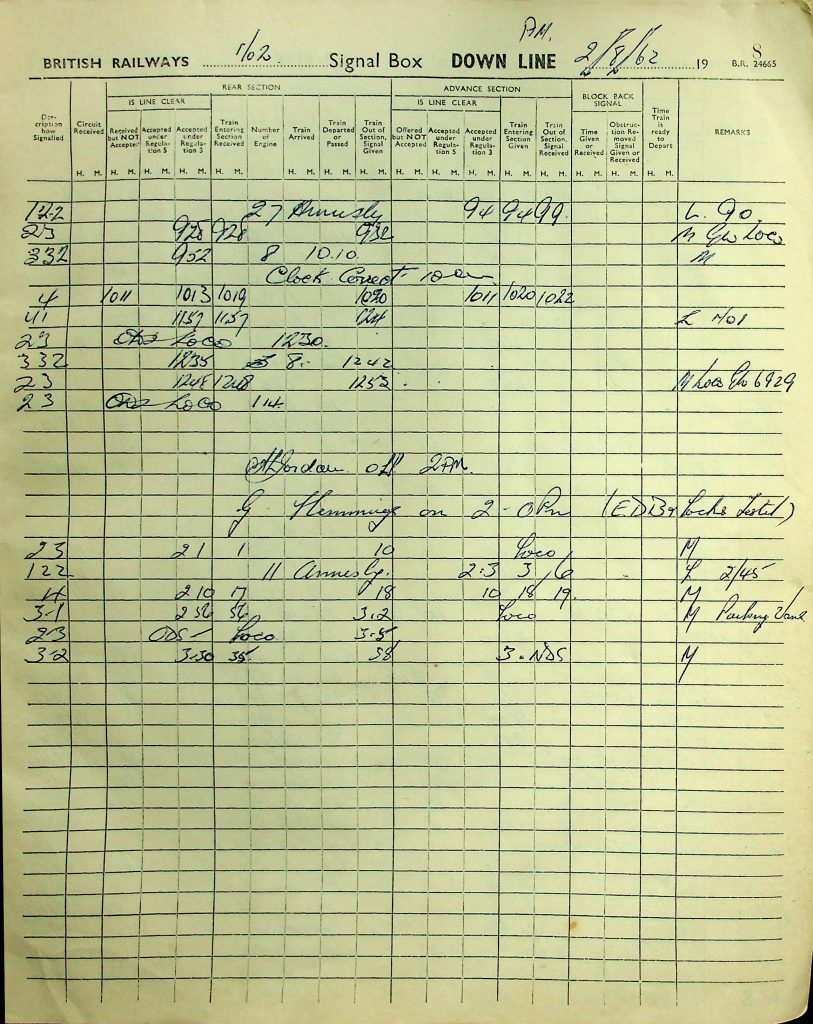 P.M.
BRITISH RAILWAYS Signal Box DOWN LINE 2/8/62 19 8
B.R. 24665
REAR SECTION ADVANCE SECTION BLOCK BACK SIGNAL
IS LINE CLEAR IS LINE CLEAR
Description how Signalled Circuit Received Received but NOT Accepted Accepted under Regulation 5 Accepted under Regulation 3 Train Entering Section Received Number of Engine Train Arrived Train Departed or Passed Train Out of Section, Signal Given Offered but NOT Accepted Accepted under Regulation 5 Accepted under Regulation 3 Train Entering Section Given Train Out of Section, Signal Received Time Given or Received Obstruction Removed Signal Given or Received Time Train is ready to Depart REMARKS
H. M. H. M. H. M. H. M. H. M. H. M. H. M. H. M. H. M. H. M. H. M. H. M. H. M. H. M. H. M. H. M.
1-2-2 27 94 94 99 L. 90.
23 928 928 932 M Loco
332 952 8 10.10 M
Clock Correct 10 am
4 1011 1013 1019 1020 1011 1020 1022
41 1157 1157 L
23 Loco 1230.
332 1235 8. 1242
23 1248 1248 1252 M Loco 6929
23 Loco 114
Jordan off 2PM.
G Flemming on 2-0 Pm Locks Tested)
23 21 1 10 Loco M
122 11 Annesly. 2.3 3 6 L 2/45
4 210 17 18 10 18 19. M
3-1 2 56 56 3.2 Loco M
2-3 ODS- Loco 3-5
3-2 3-30 35. 38 3. NDS M